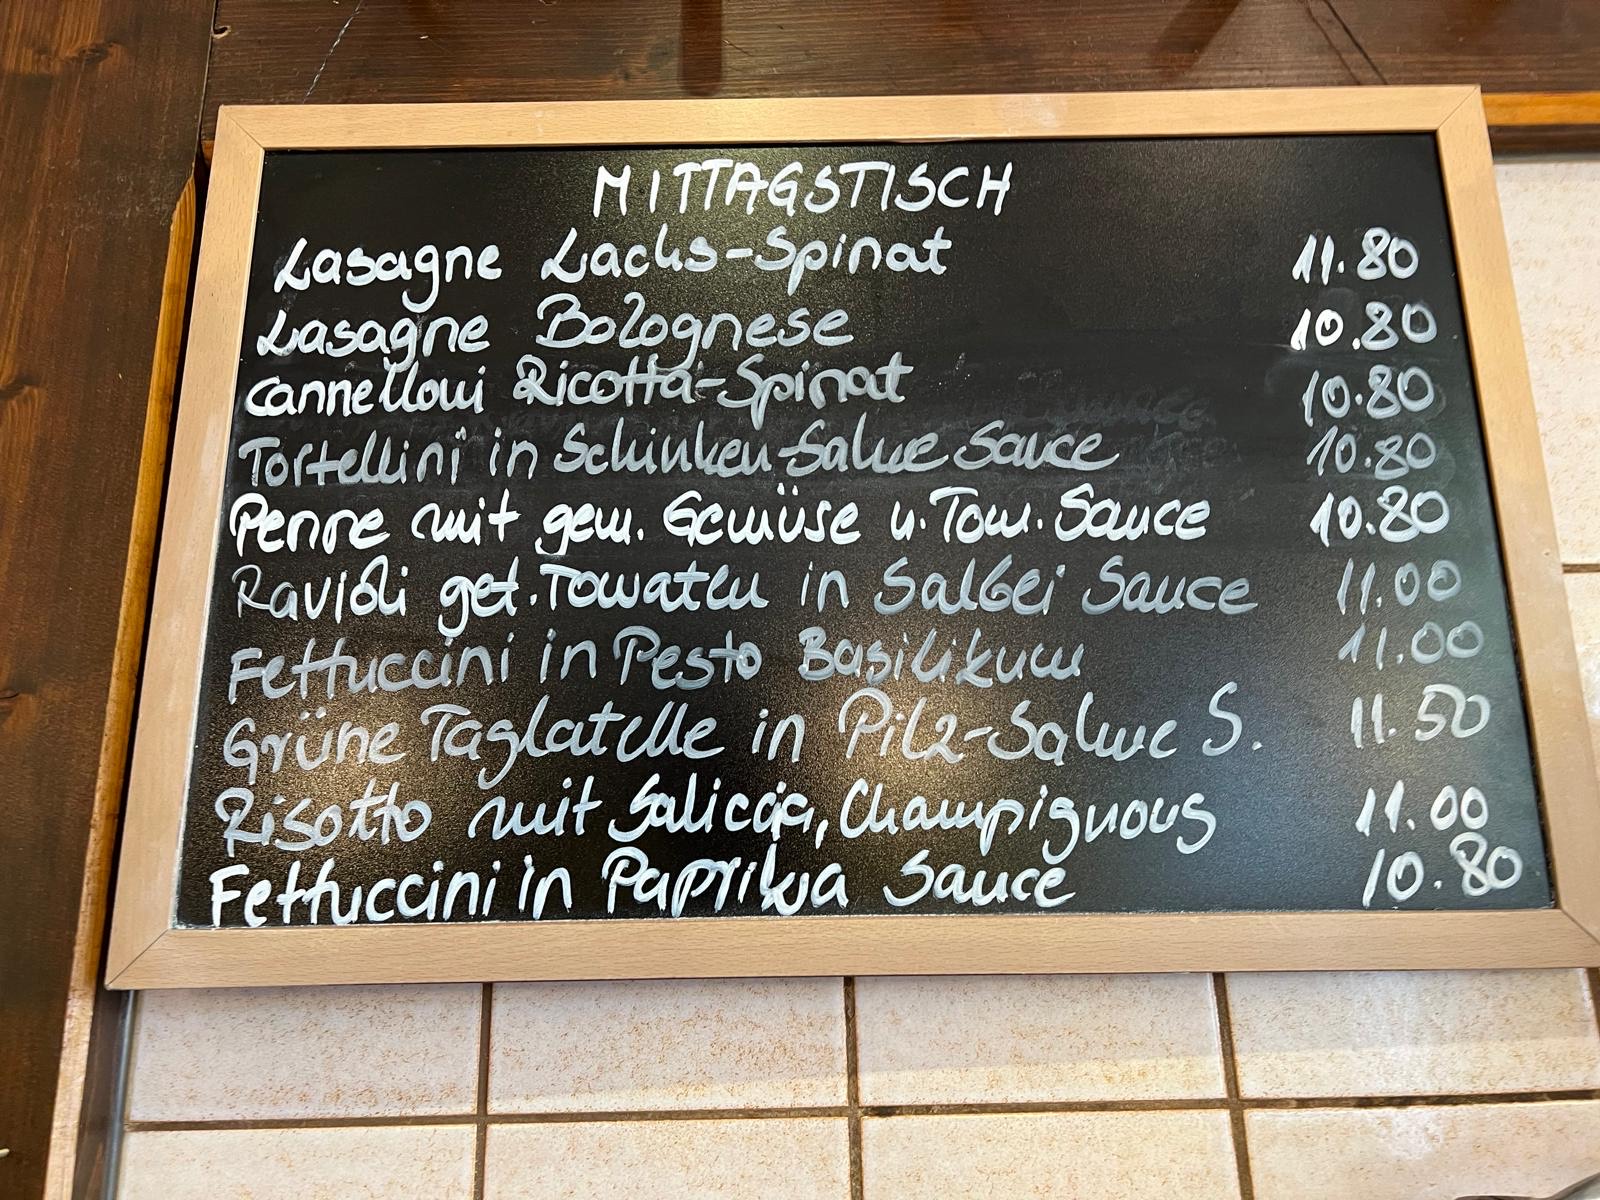 MITTAGSTISCH
Lasagne Lachs-Spinat 11.80
Lasagne Bolognese 10.80
Cannelloni Ricotta-Spinat 10.80
Tortellini in Schinken-Sahne Sauce 10.80
Penne mit gem. Gemüse u. Tom. Sauce 10.80
Ravioli get. Tomaten in Salbei Sauce 11.00
Fettuccini in Pesto Basilikum 11.00
Grüne Taglatelle in Pilz-Sahne S. 11.50
Risotto mit Saliccia, Champignons 11.00
Fettuccini in Paprika Sauce 10.80